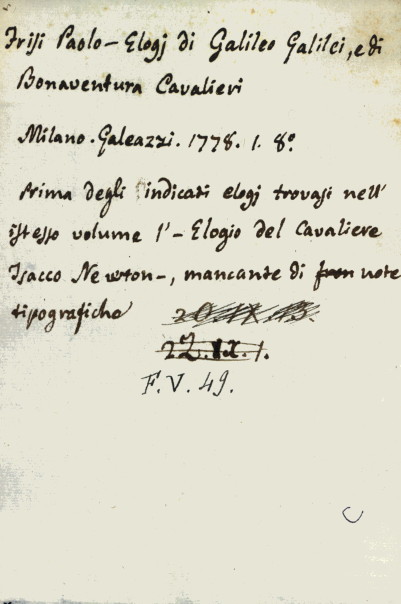 Frisi Paolo - Elogj di Galileo Galilei, e di
Bonaventura Cavalieri
Milano. Galeazzi. 1778. 1. 8º
Prima degli indicati elogj trovasi nell'
istesso volume l' - Elogio del Cavaliere
Isacco Newton -, mancante di note
tipografiche
22.IX.1.
F.V. 49.